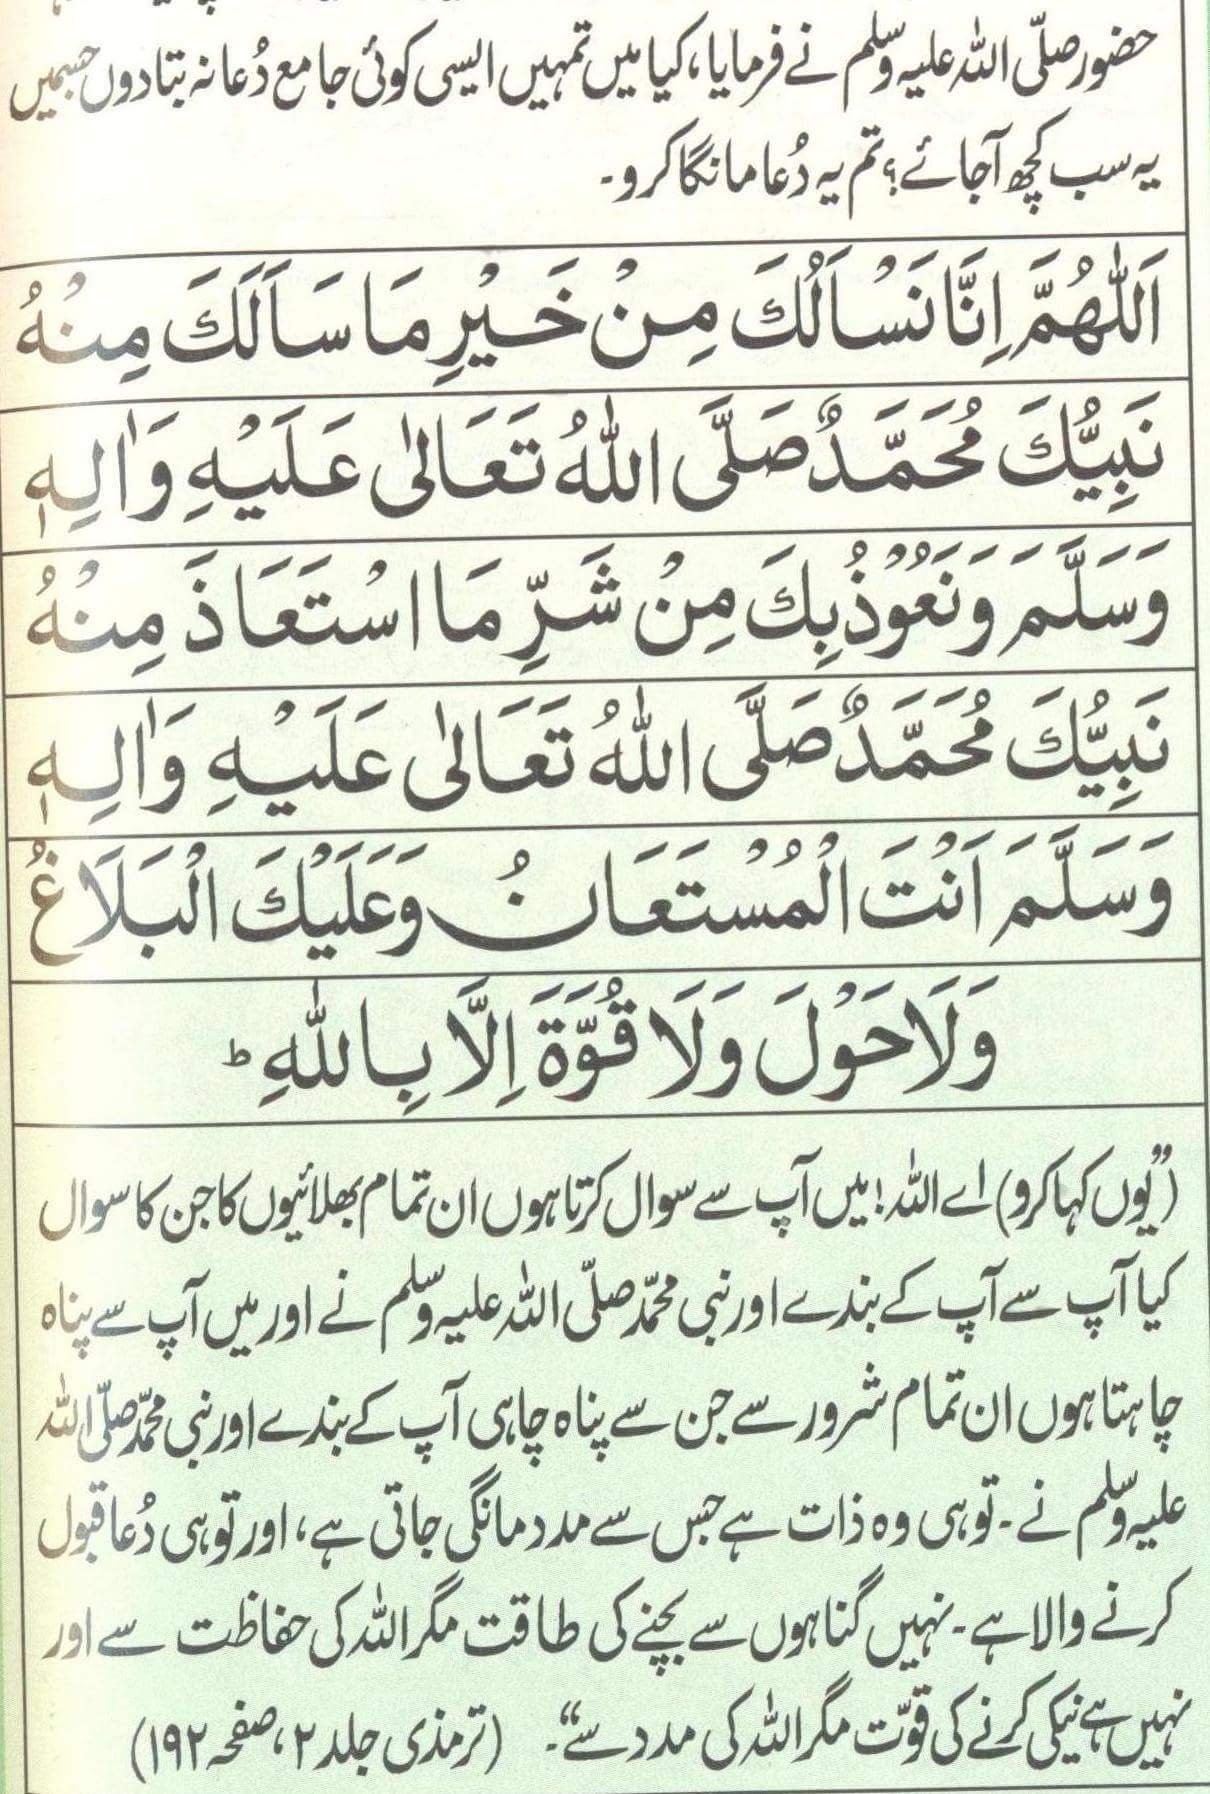 حضور صلّی اللہ علیہ وسلم نے فرمایا، کیا میں تمہیں ایسی کوئی جامع دُعا نہ بتا دوں جسمیں
یہ سب کچھ آجائے؟ تم یہ دُعا مانگا کرو۔
اَللّٰهُمَّ اِنَّا نَسْاَلُكَ مِنْ خَيْرِ مَا سَاَلَكَ مِنْهُ
نَبِيُّكَ مُحَمَّدٌ صَلَّى اللّٰهُ تَعَالىٰ عَلَيْهِ وَاٰلِهٖ
وَسَلَّمَ وَنَعُوْذُ بِكَ مِنْ شَرِّ مَا اسْتَعَاذَ مِنْهُ
نَبِيُّكَ مُحَمَّدٌ صَلَّى اللّٰهُ تَعَالىٰ عَلَيْهِ وَاٰلِهٖ
وَسَلَّمَ اَنْتَ الْمُسْتَعَانُ وَعَلَيْكَ الْبَلَاغُ
وَلَا حَوْلَ وَلَا قُوَّةَ اِلَّا بِاللّٰهِ ؕ
(”یُوں کہا کرو) اے اللہ! میں آپ سے سوال کرتا ہوں ان تمام بھلائیوں کا جن کا سوال
کیا آپ سے آپ کے بندے اور نبی محمّد صلّی اللہ علیہ وسلم نے اور میں آپ سے پناہ
چاہتا ہوں ان تمام شرور سے جن سے پناہ چاہی آپ کے بندے اور نبی محمّد صلّی اللہ
علیہ وسلم نے۔ تو ہی وہ ذات ہے جس سے مدد مانگی جاتی ہے، اور تو ہی دُعا قبول
کرنے والا ہے۔ نہیں گناہوں سے بچنے کی طاقت مگر اللہ کی حفاظت سے اور
نہیں ہے نیکی کرنے کی قوّت مگر اللہ کی مدد سے“۔ (ترمذی جلد ۲، صفحہ ۱۹۲)